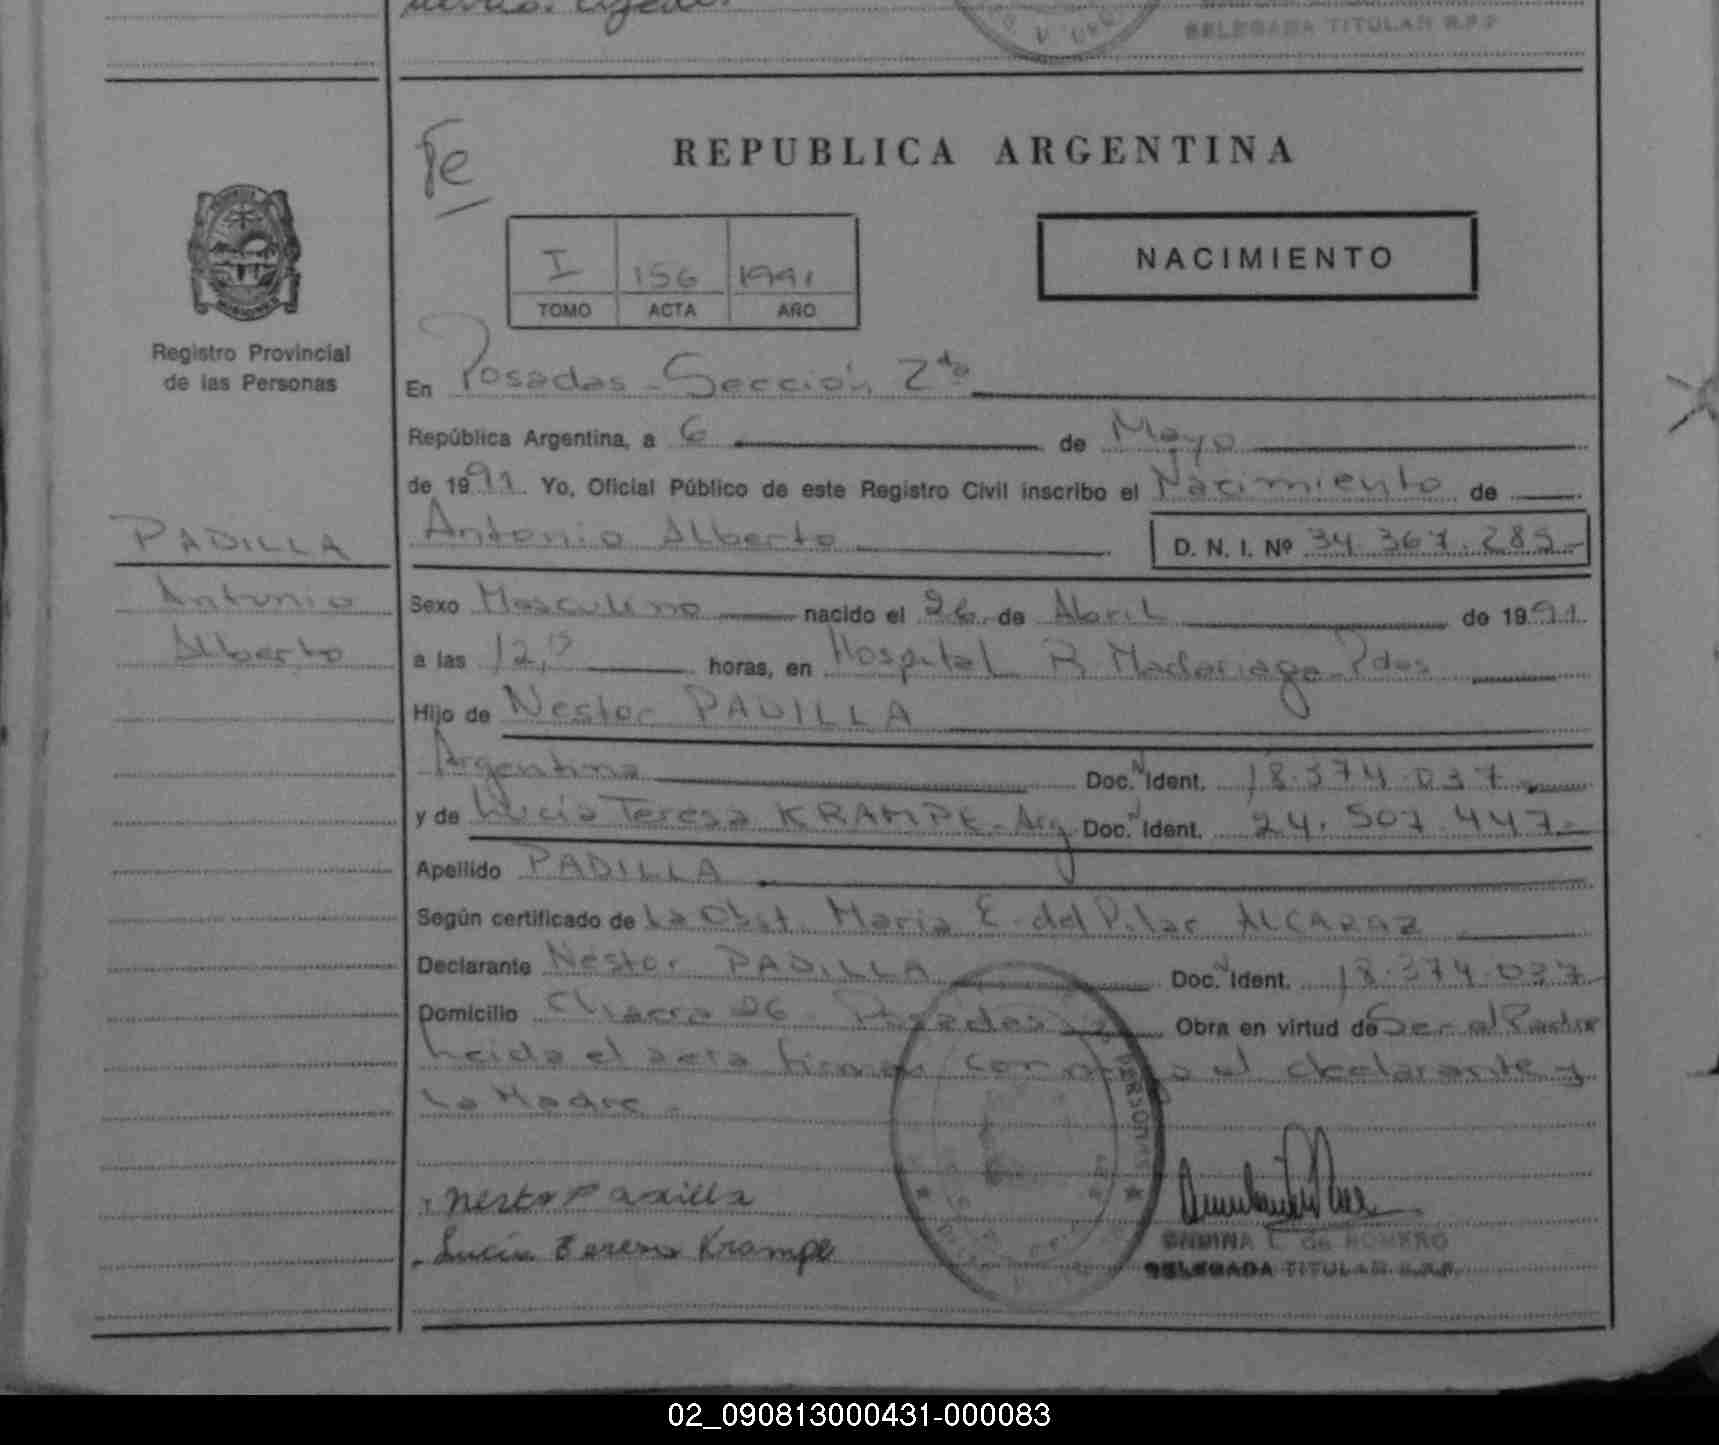 DELEGADA TITULAR R.P.P
Registro Provincial
de las Personas
PADILLA
Antonio
Alberto
Fe
REPUBLICA ARGENTINA
I 156 1991
TOMO ACTA AÑO
NACIMIENTO
En Posadas - Sección 2da
República Argentina, a 6 de Mayo
de 1991. Yo, Oficial Público de este Registro Civil inscribo el Nacimiento de
Antonio Alberto D. N. I. Nº 34.367.285-
Sexo Masculino nacido el 26 de Abril de 1991
a las 12, horas, en Hospital R Madariaga - Pdas
Hijo de Nestor PADILLA
Argentino Doc. N Ident. 18.374.037-
y de Lucía Teresa KRAMPE - Arg Doc. N Ident. 24.507.447-
Apellido PADILLA
Según certificado de La Obst. María E. del Pilar ALCARAZ
Declarante Néstor PADILLA Doc. N Ident. 18.374.037
Domicilio Chacra 26 - Posadas Obra en virtud de Ser el Padre
Leida el acta firman conmigo el declarante y
La Madre -
Nestor Padilla
Lucia Teresa Krampe
de ROMERO
DELEGADA TITULAR R.P.P.
02_090813000431-000083